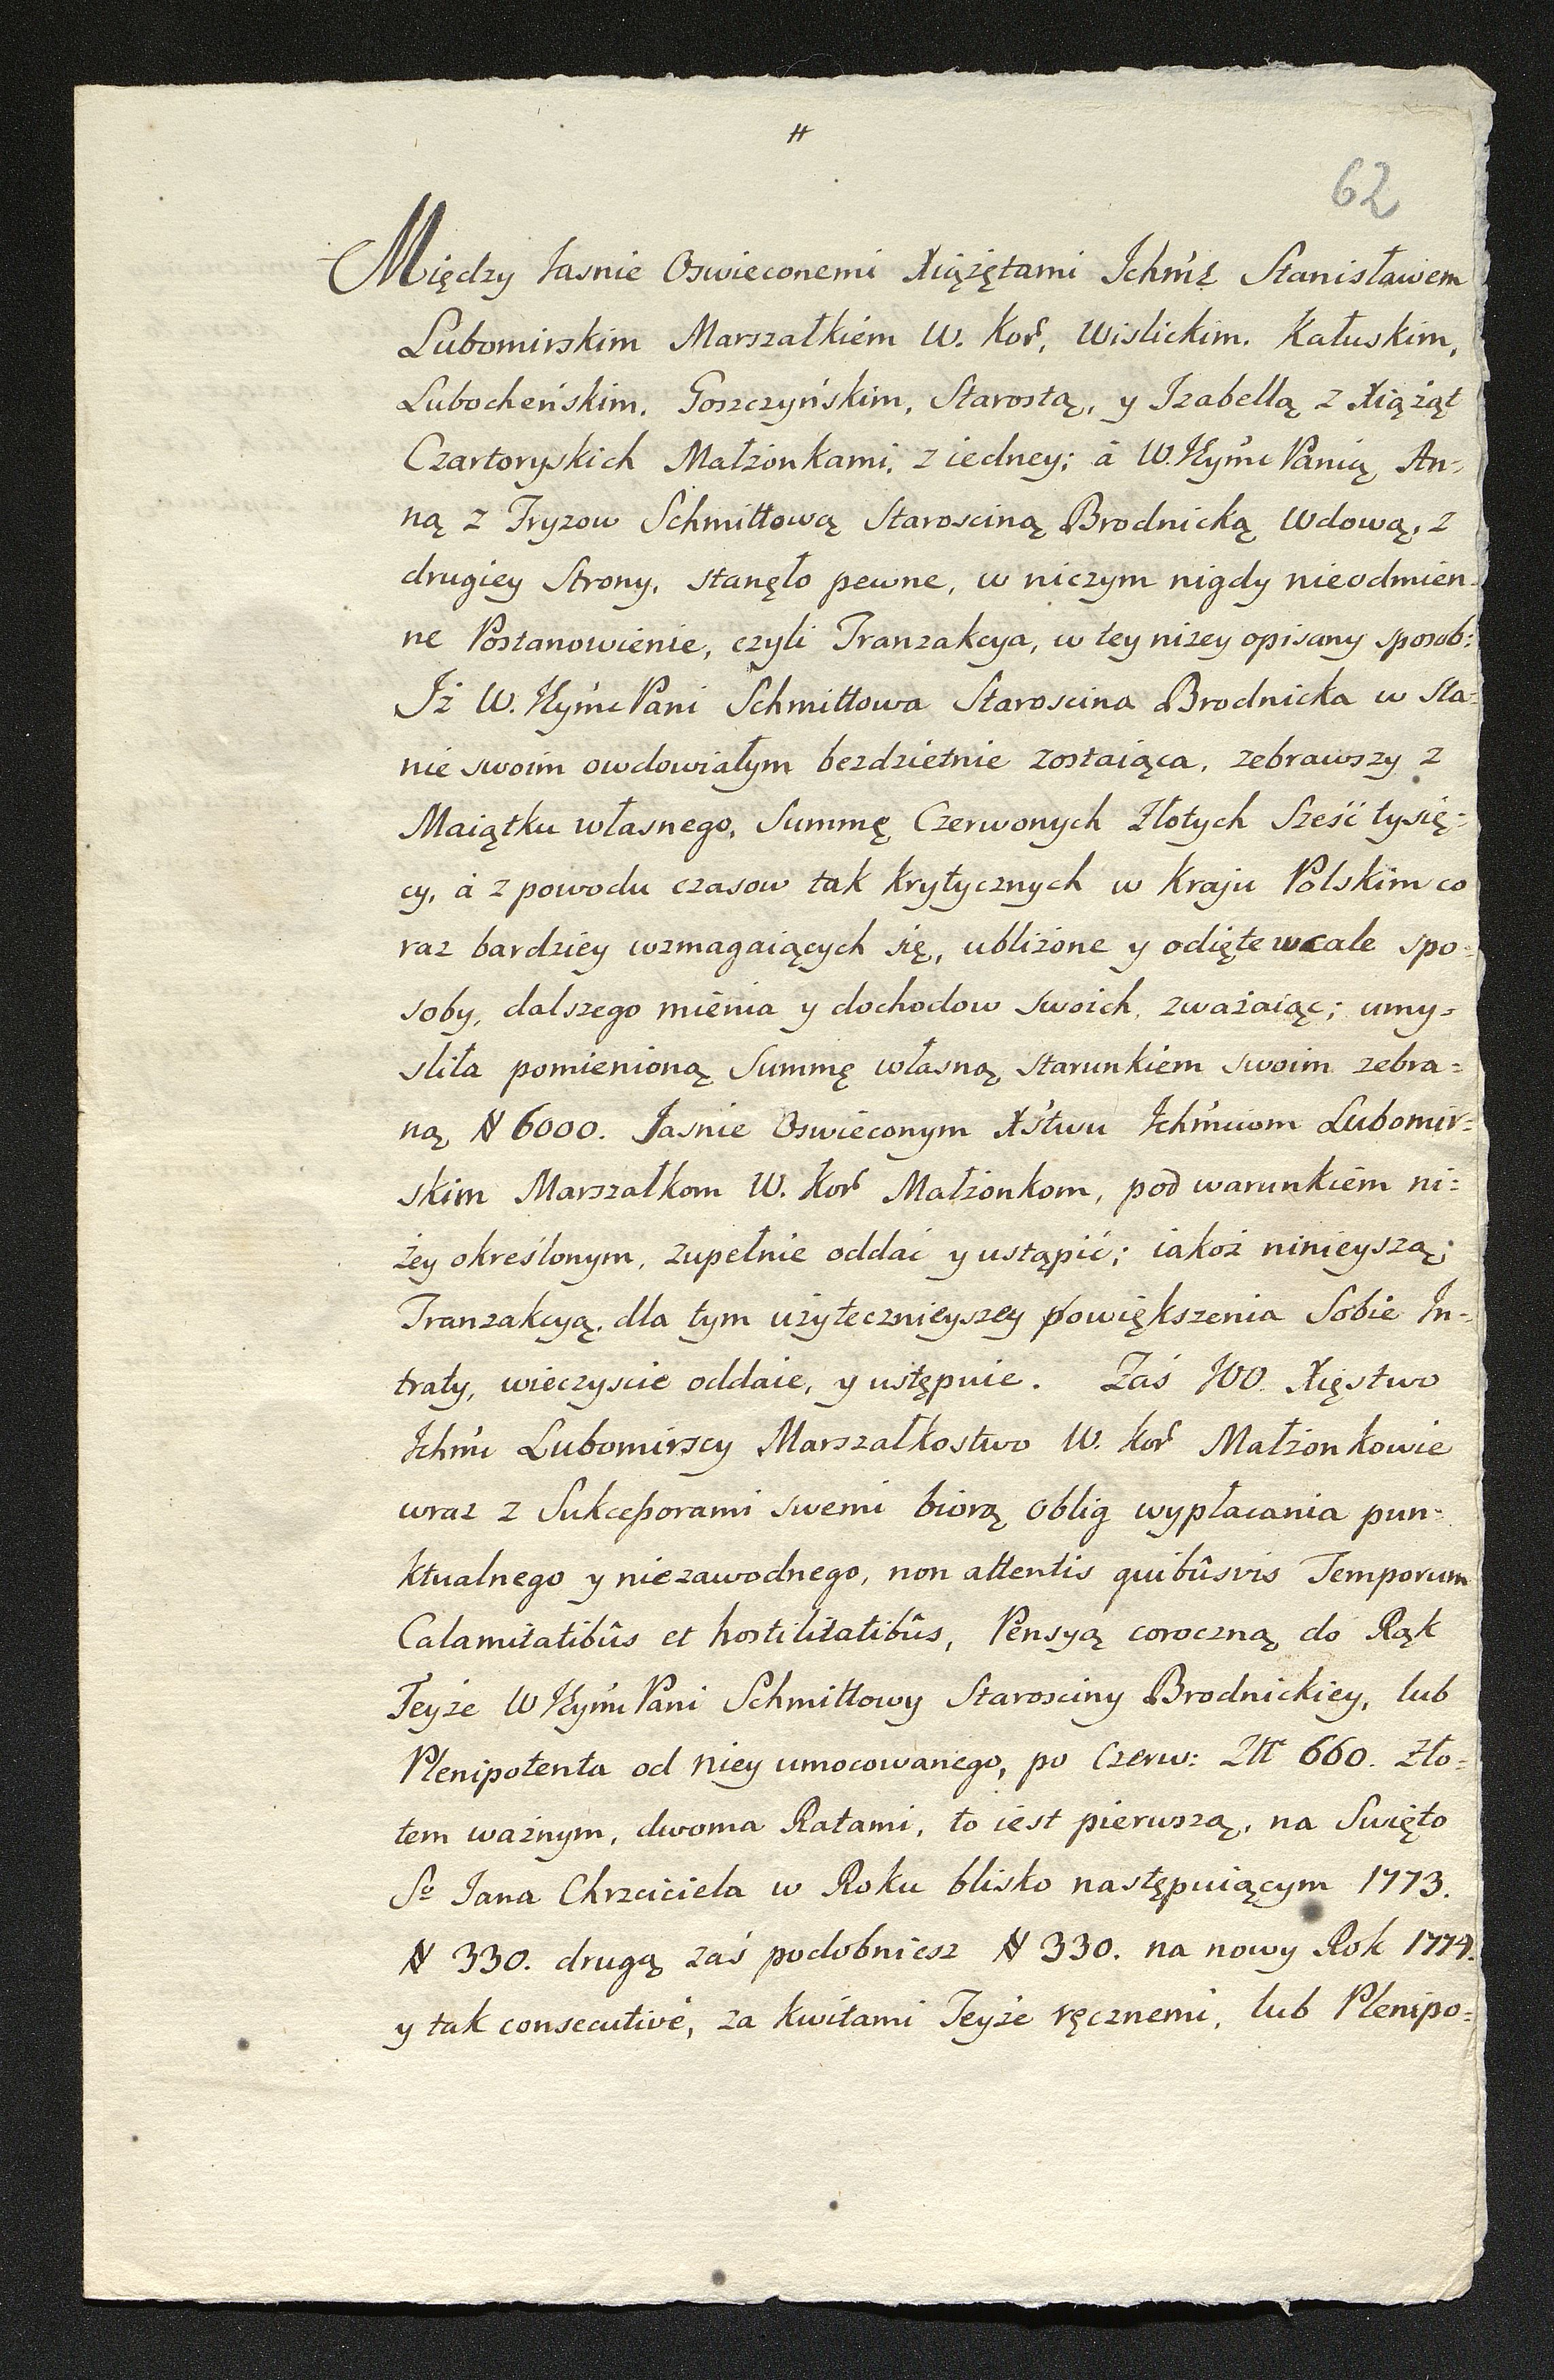 #
62
Między Jasnie Oswieconemi Xiążętami Ichmć Stanisławem
Lubomirskim Marszałkiém W. Kor, Wislickim. Kałuskim,
Lubocheńskim, Goszczyńskim, Starostą, y Izabellą z Xiążąt
Czartoryskich Małżonkami, z iedney; á W. Jeymć Panią An-
ną z Fryzow Schmittową Starosciną Brodnicką Wdową, z
drugiey Strony, stanęło pewne, w niczym nigdy nieodmien-
ne Postanowienie, czyli Tranzakcya, w tey niżey opisany sposob:
Iż W. Jeymć Pani Schmittowa Staroscina Brodnicka w Sta-
nie swoim owdowiałym bezdzietnie zostaiąca, zebrawszy z
Maiątku własnego, Summę Czerwonych Złotych Sześć tysię=
cy, á z powodu czasow tak krytycznych w Kraju Polskim co
raz bardziey wzmagaiących się, ubliżone y odięte wcale spo=
soby, dalszego mienia y dochodow swoich, zważaiąc; umy=
sliła pomienioną Summę własną starunkiem swoim zebra=
ną # 6000. Jasnie Oswieconym Xstwu Ichmciom Lubomir=
skim Marszałkom W. Kor Małżonkom, pod warunkiem ni=
żey określonym, zupełnie oddać y ustąpić; iakoż ninieyszą
Tranzakcyą, dla tym użytecznieyszey powiększenia Sobie In-
traty, wieczyscie oddaie, y ustępuie. Zaś JOO. Xięstwo
Ichmć Lubomirscy Marszałkostwo W. Kor Małżonkowie
wraz z Sukceßorami swemi biorą oblig wypłacania pun-
ktualnego y niezawodnego, non attentis quibûsvis Temporum
Calamitatibûs et hostilitatibûs, Pensyą coroczną do Rąk
Teyże W Jeymć Pani Schmittowy Starosciny Brodnickiey, lub
Plenipotenta od niey umocowanego, po Czerw: Złł 660. Zło=
tem ważnym, dwoma Ratami, to iest pierwszą, na Swięto
Sº Jana Chrzciciela w Roku blisko następuiącym 1773.
# 330. drugą zaś podobniesz # 330. na nowy Rok 1774.
y tak consecutivé, za kwitami Teyże ręcznemi, lub Plenipo=